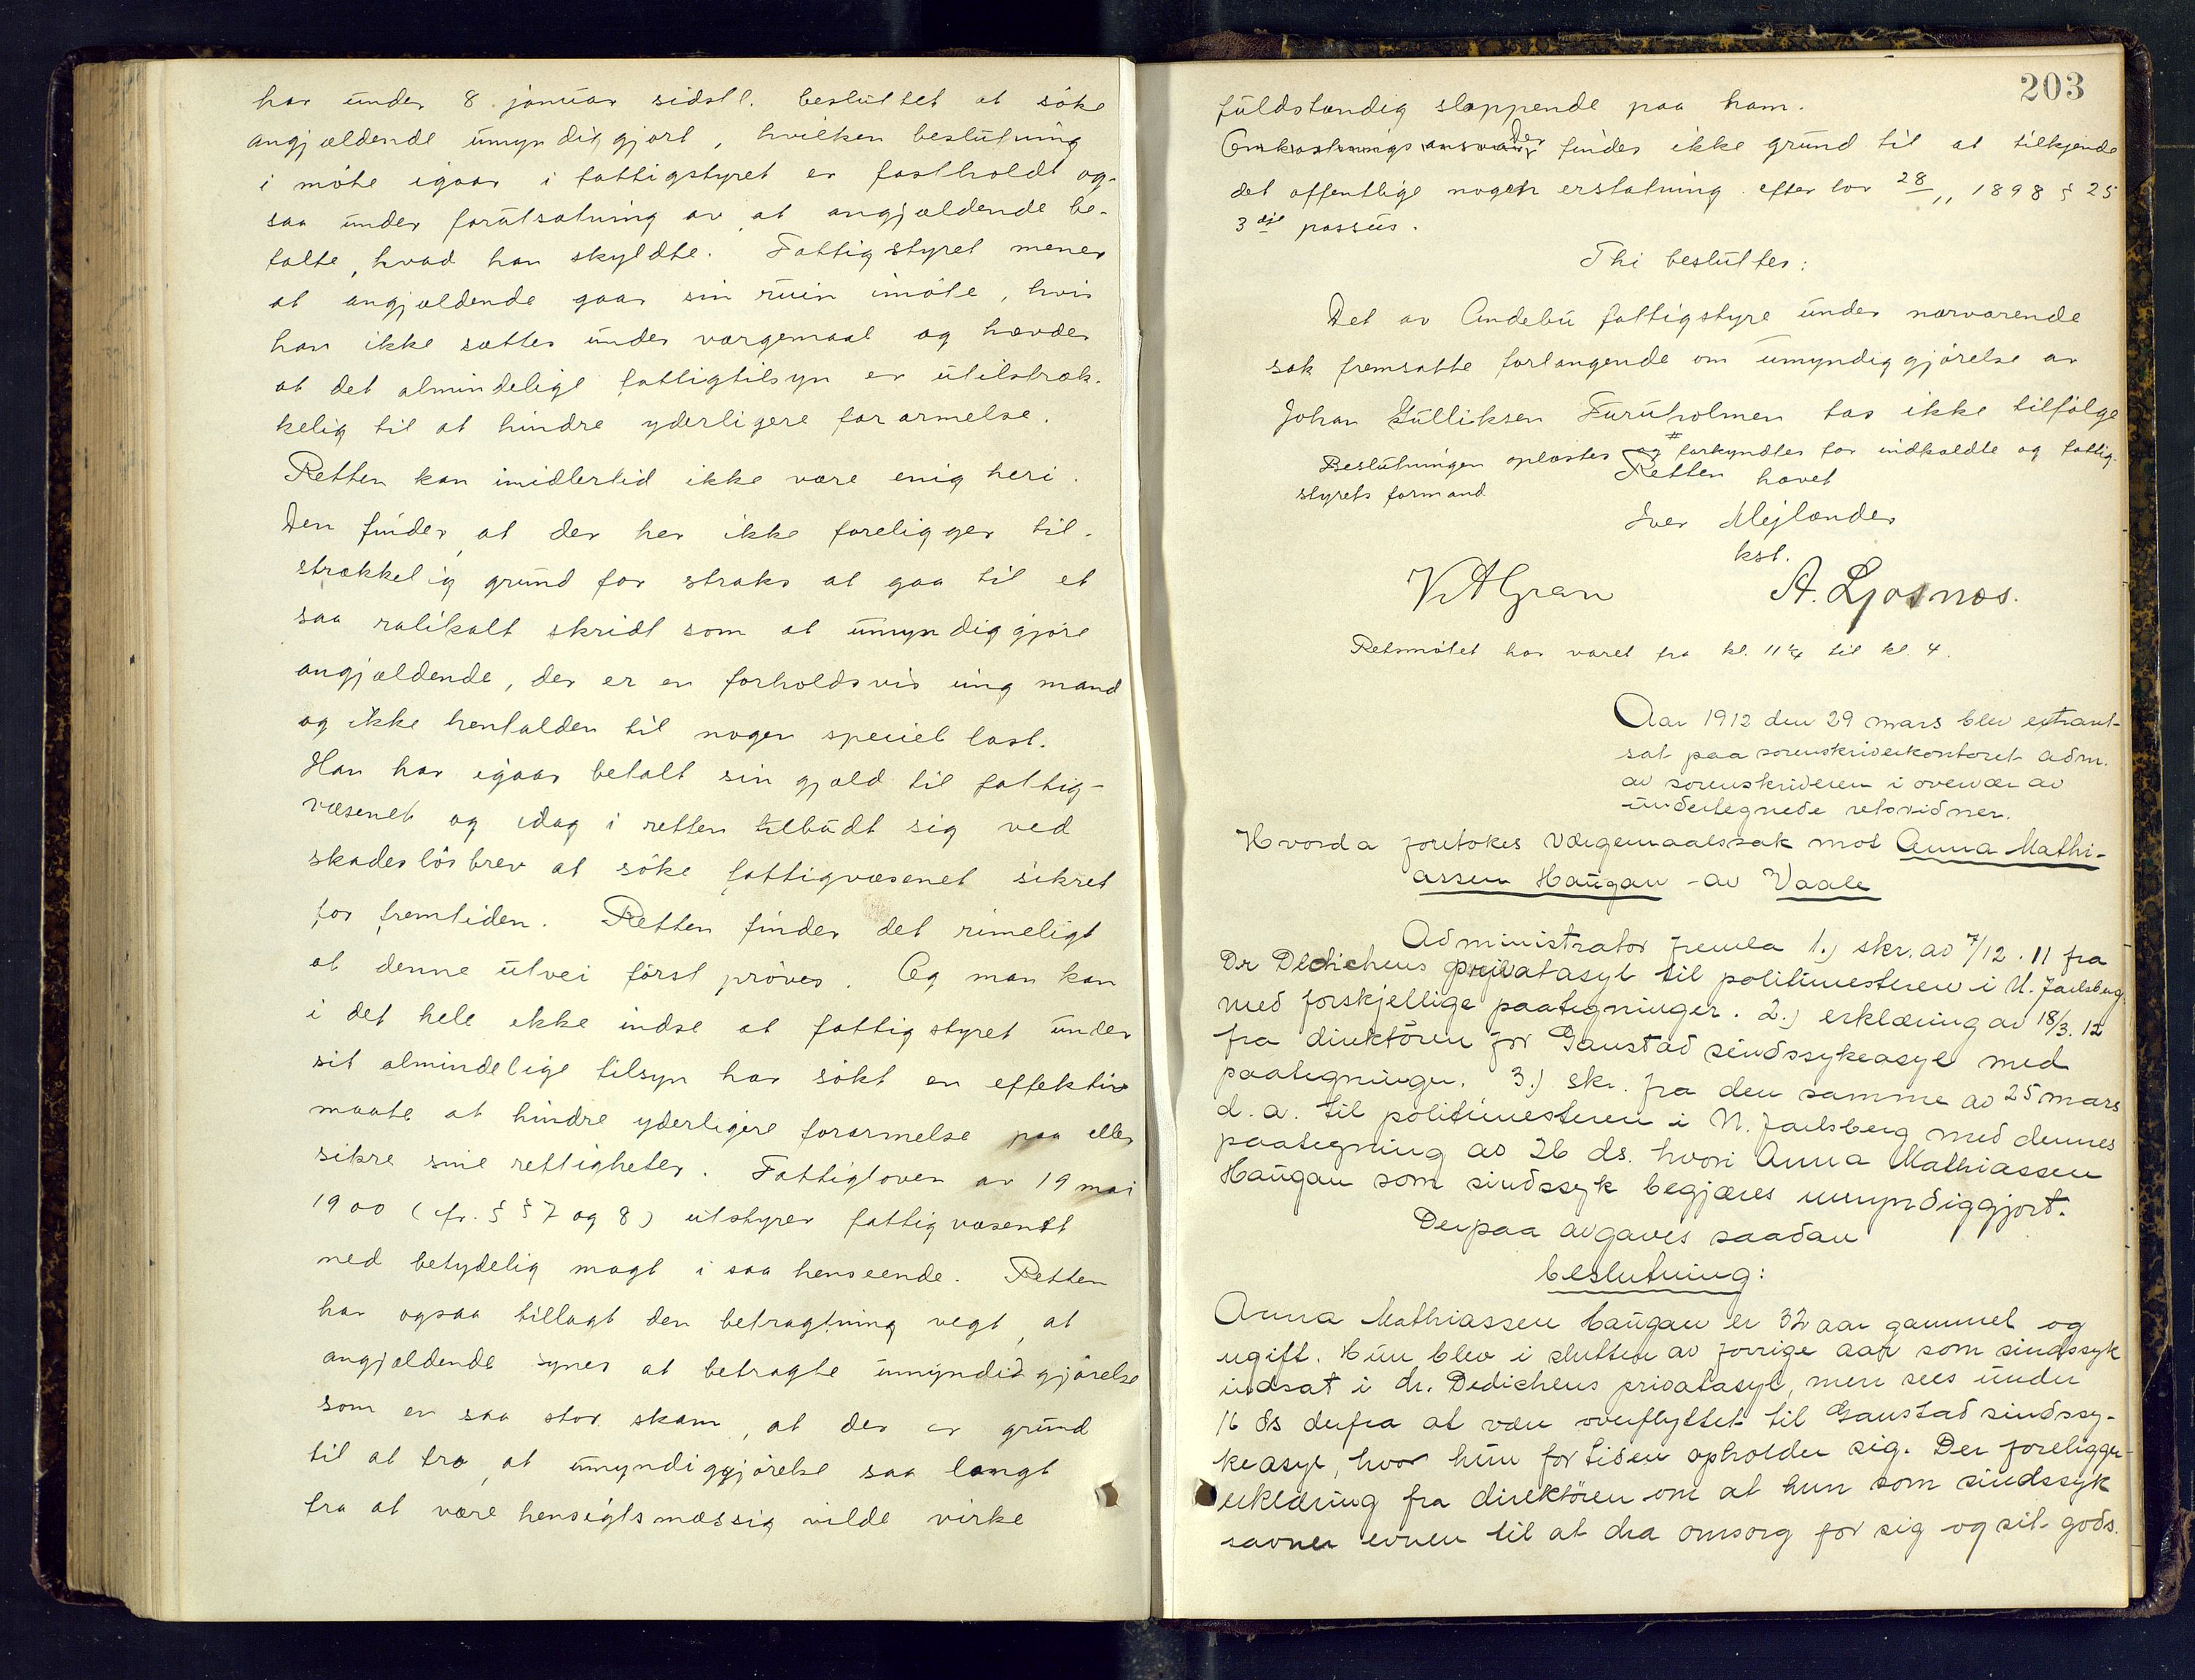 har under 8 januar sidstl. besluttet at söke
angjældende umyndiggjort, hvilken beslutning
i möte igaar i fattigstyret er fastholdt og-
saa under forutsætning av at angjældende be-
talte, hvad han skyldte. Fattigstyret mener
at angjældende gaar sin ruin imöte, hvis
han ikke sættes under værgemaal og hævder
at det almindelige fattigtilsyn er utilstræk-
kelig til at hindre yderligere forarmelse.
Retten kan imidlertid ikke være enig heri.
Den finder, at der her ikke foreligger til-
strækkelig grund for straks at gaa til et
saa ralikalt skridt som at umyndiggjöre
angjældende, der er en forholdsvis ung mand
og ikke henfalden til nogen speciel last.
Han har igaar betalt sin gjæld til fattig-
væsenet og idag i retten tilbudt sig ved
skadeslösbrev at söke fattigvæsenet sikret
for fremtiden. Retten finder det rimeligt
at denne utvei först pröves. Og man kan
i det hele ikke indse at fattigstyret under
sit almindelige tilsyn har sökt en effektiv
maate at hindre yderligere forarmelse paa eller
sikre sine rettigheter. Fattigloven av 19 mai
1900 (cfr. § § 7 og 8) utstyrer fattigvæsenet
med betydelig magt i saa henseende. Retten
har ogsaa tillagt den betragtning vegt, at
angjældende synes at betragte umyndiggjörelse
som en saa stor skam, at der er grund
til at tro, at umyndiggjörelse saa langt
fra at være hensigtsmæssig vilde virke
203
fuldstændig sløppende paa ham.
Omkostningsansvar Der findes ikke grund til at tilkjende
det offentlige nogen erstatning efter lov 28/11 1898 § 25
3die passus.
Thi besluttes:
Det av Andebu fattigstyre under nærværende
sak fremsatte forlangende om umyndiggjörelse av
Johan Gulliksen Furuholmen tas ikke tilfölge
Beslutningen oplæstes og forkyndtes for indkaldte og fattig-
styrets formand
Retten hævet
Iver Mejlænder
kst.
V. A Gran A. Ljosnæs.
Retsmötet har varet fra kl. 11 1/4 til kl. 4.
Aar 1912 den 29 mars blev extraret-
sat paa sorenskriverkontoret adm.
av sorenskriveren i overvær av
undertegnede retsvidner.
Hvorda foretokes Værgemaalssak mot Anna Mathi-
assen Haugan av Vaale
Administrator fremla 1.) skr. av 7/12. 11 fra
Dr Dedichens privatasyl til politimesteren i N. Jarlsberg
med forskjellige paategninger. 2.) erklæring av 18/3. 12
fra direktören for Gaustad sindssykeasyl med
paategninger. 3.) skr. fra den samme av 25 mars
d. a. til politimesteren i N. Jarlsberg med dennes
paategning av 26 ds. hvori Anna Mathiassen
Haugan som sindssyk begjæres umyndiggjort.
Derpaa avgaves saadan
beslutning:
Anna Mathiassen Haugan er 32 aar gammel og
ugift. Hun blev i slutten av forrige aar som sindssyk
indsat i dr. Dedichens privatasyl, men sees under
16 ds derfra at være overflyttet til Gaustad sindssy-
keasyl, hvor hun for tiden opholder sig. Der foreligger
erklæring fra direktören om at hun som sindssyk
savner evnen til at dra omsorg for sig og sit gods.